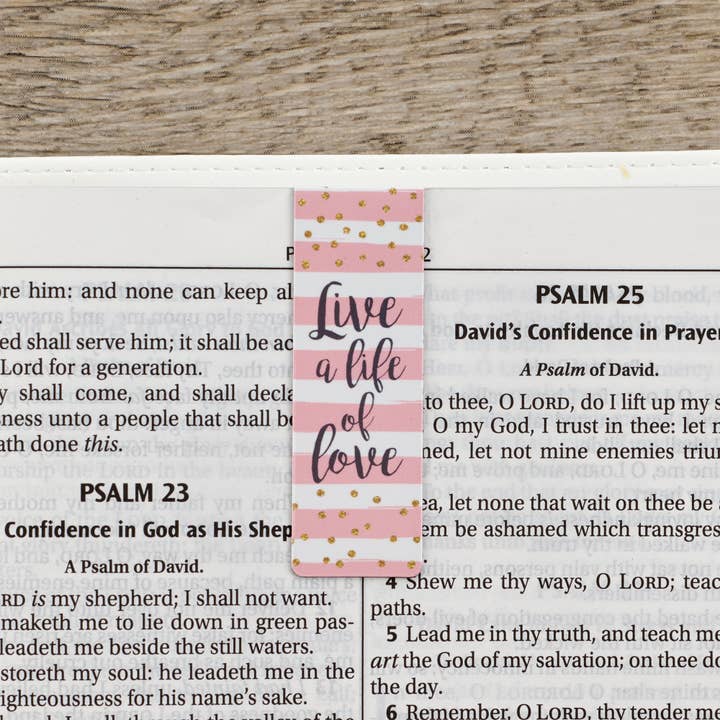 Live
a life
of
love
P
2
re him: and none can keep al
ed shall serve him; it shall be ac
Lord for a generation.
y shall come, and shall decla
sness unto a people that shall be
ath done this.
PSALM 23
Confidence in God as His Shep
A Psalm of David.
RD is my shepherd; I shall not want.
maketh me to lie down in green pas-
leadeth me beside the still waters.
storeth my soul: he leadeth me in the
ighteousness for his name's sake.
PSALM 25
David's Confidence in Prayer
A Psalm of David.
to thee, O LORD, do I lift up my s
O my God, I trust in thee: let n
med, let not mine enemies trium
ea, let none that wait on thee be a
em be ashamed which transgres
4 Shew me thy ways, O LORD; teac
paths.
5 Lead me in thy truth, and teach me
art the God of my salvation; on thee do
the day.
6 Remember, O LORD, thy tender me